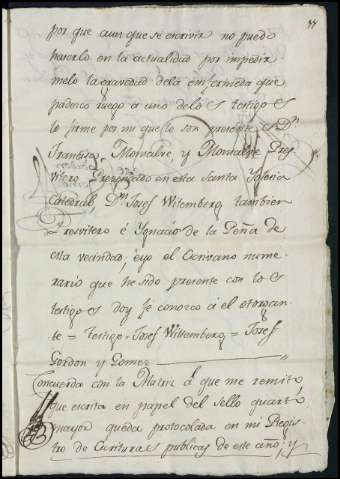 44
por que aunque se escrivir no puedo
hacerlo en la actualidad por impedir
melo la gravedad dela enfermeda que
padezco ruego a uno delos testigos
lo firme por mi que lo son presentes Dn.
Francisco Moncalve, y Moncalve Pres
vitero Prevendado en esta Santa Yglecia
Catedral, Dn. Josef Witemberg tambien
Presvitero é Ygnacio de la Peña de
esta vecindad; é yo el Escrivano nume-
rario que he sido presente con los
testigos doy fe conosco á el otorgan-
te = Testigo = Josef Wittemberg = Josef
Gordon y Gomez
Concuerda con la Matriz á que me remito
que escrita en papel del sello quarto
mayor queda protocolada en mi Regis
tro de Escrituras publicas de este año; y